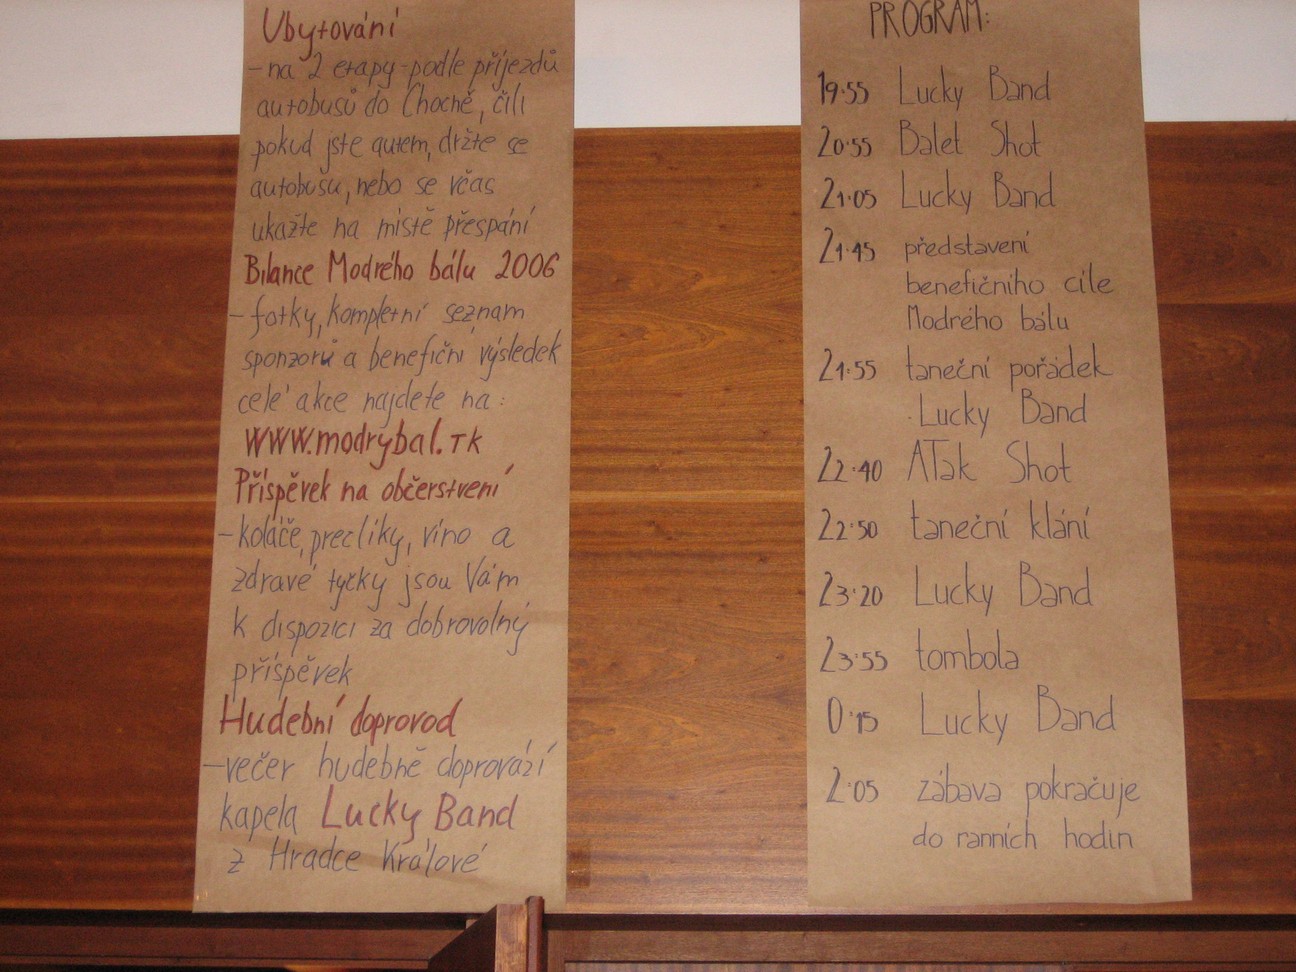 Ubytování
-na 2 etapy-podle příjezdů
autobusů do Chocně, čili
pokud jste autem, držte se
autobusu, nebo se včas
ukažte na místě přespání
Bilance Modrého bálu 2006
-fotky, kompletní seznam
sponzorů a benefiční výsledek
celé akce najdete na:
WWW.modrybal.TK
Příspěvek na občerstvení
-koláče, preclíky, víno a
zdravé tyčky jsou Vám
k dispozici za dobrovolný
příspěvek
Hudební doprovod
-večer hudebně doprovází
kapela Lucky Band
z Hradce Králové
PROGRAM:
19:55 Lucky Band
20:55 Balet Shot
21:05 Lucky Band
21:45 představení
benefičního cíle
Modrého bálu
21:55 taneční pořádek
Lucky Band
22:40 ATak Shot
22:50 taneční klání
23:20 Lucky Band
23:55 tombola
0:15 Lucky Band
2:05 zábava pokračuje
do ranních hodin